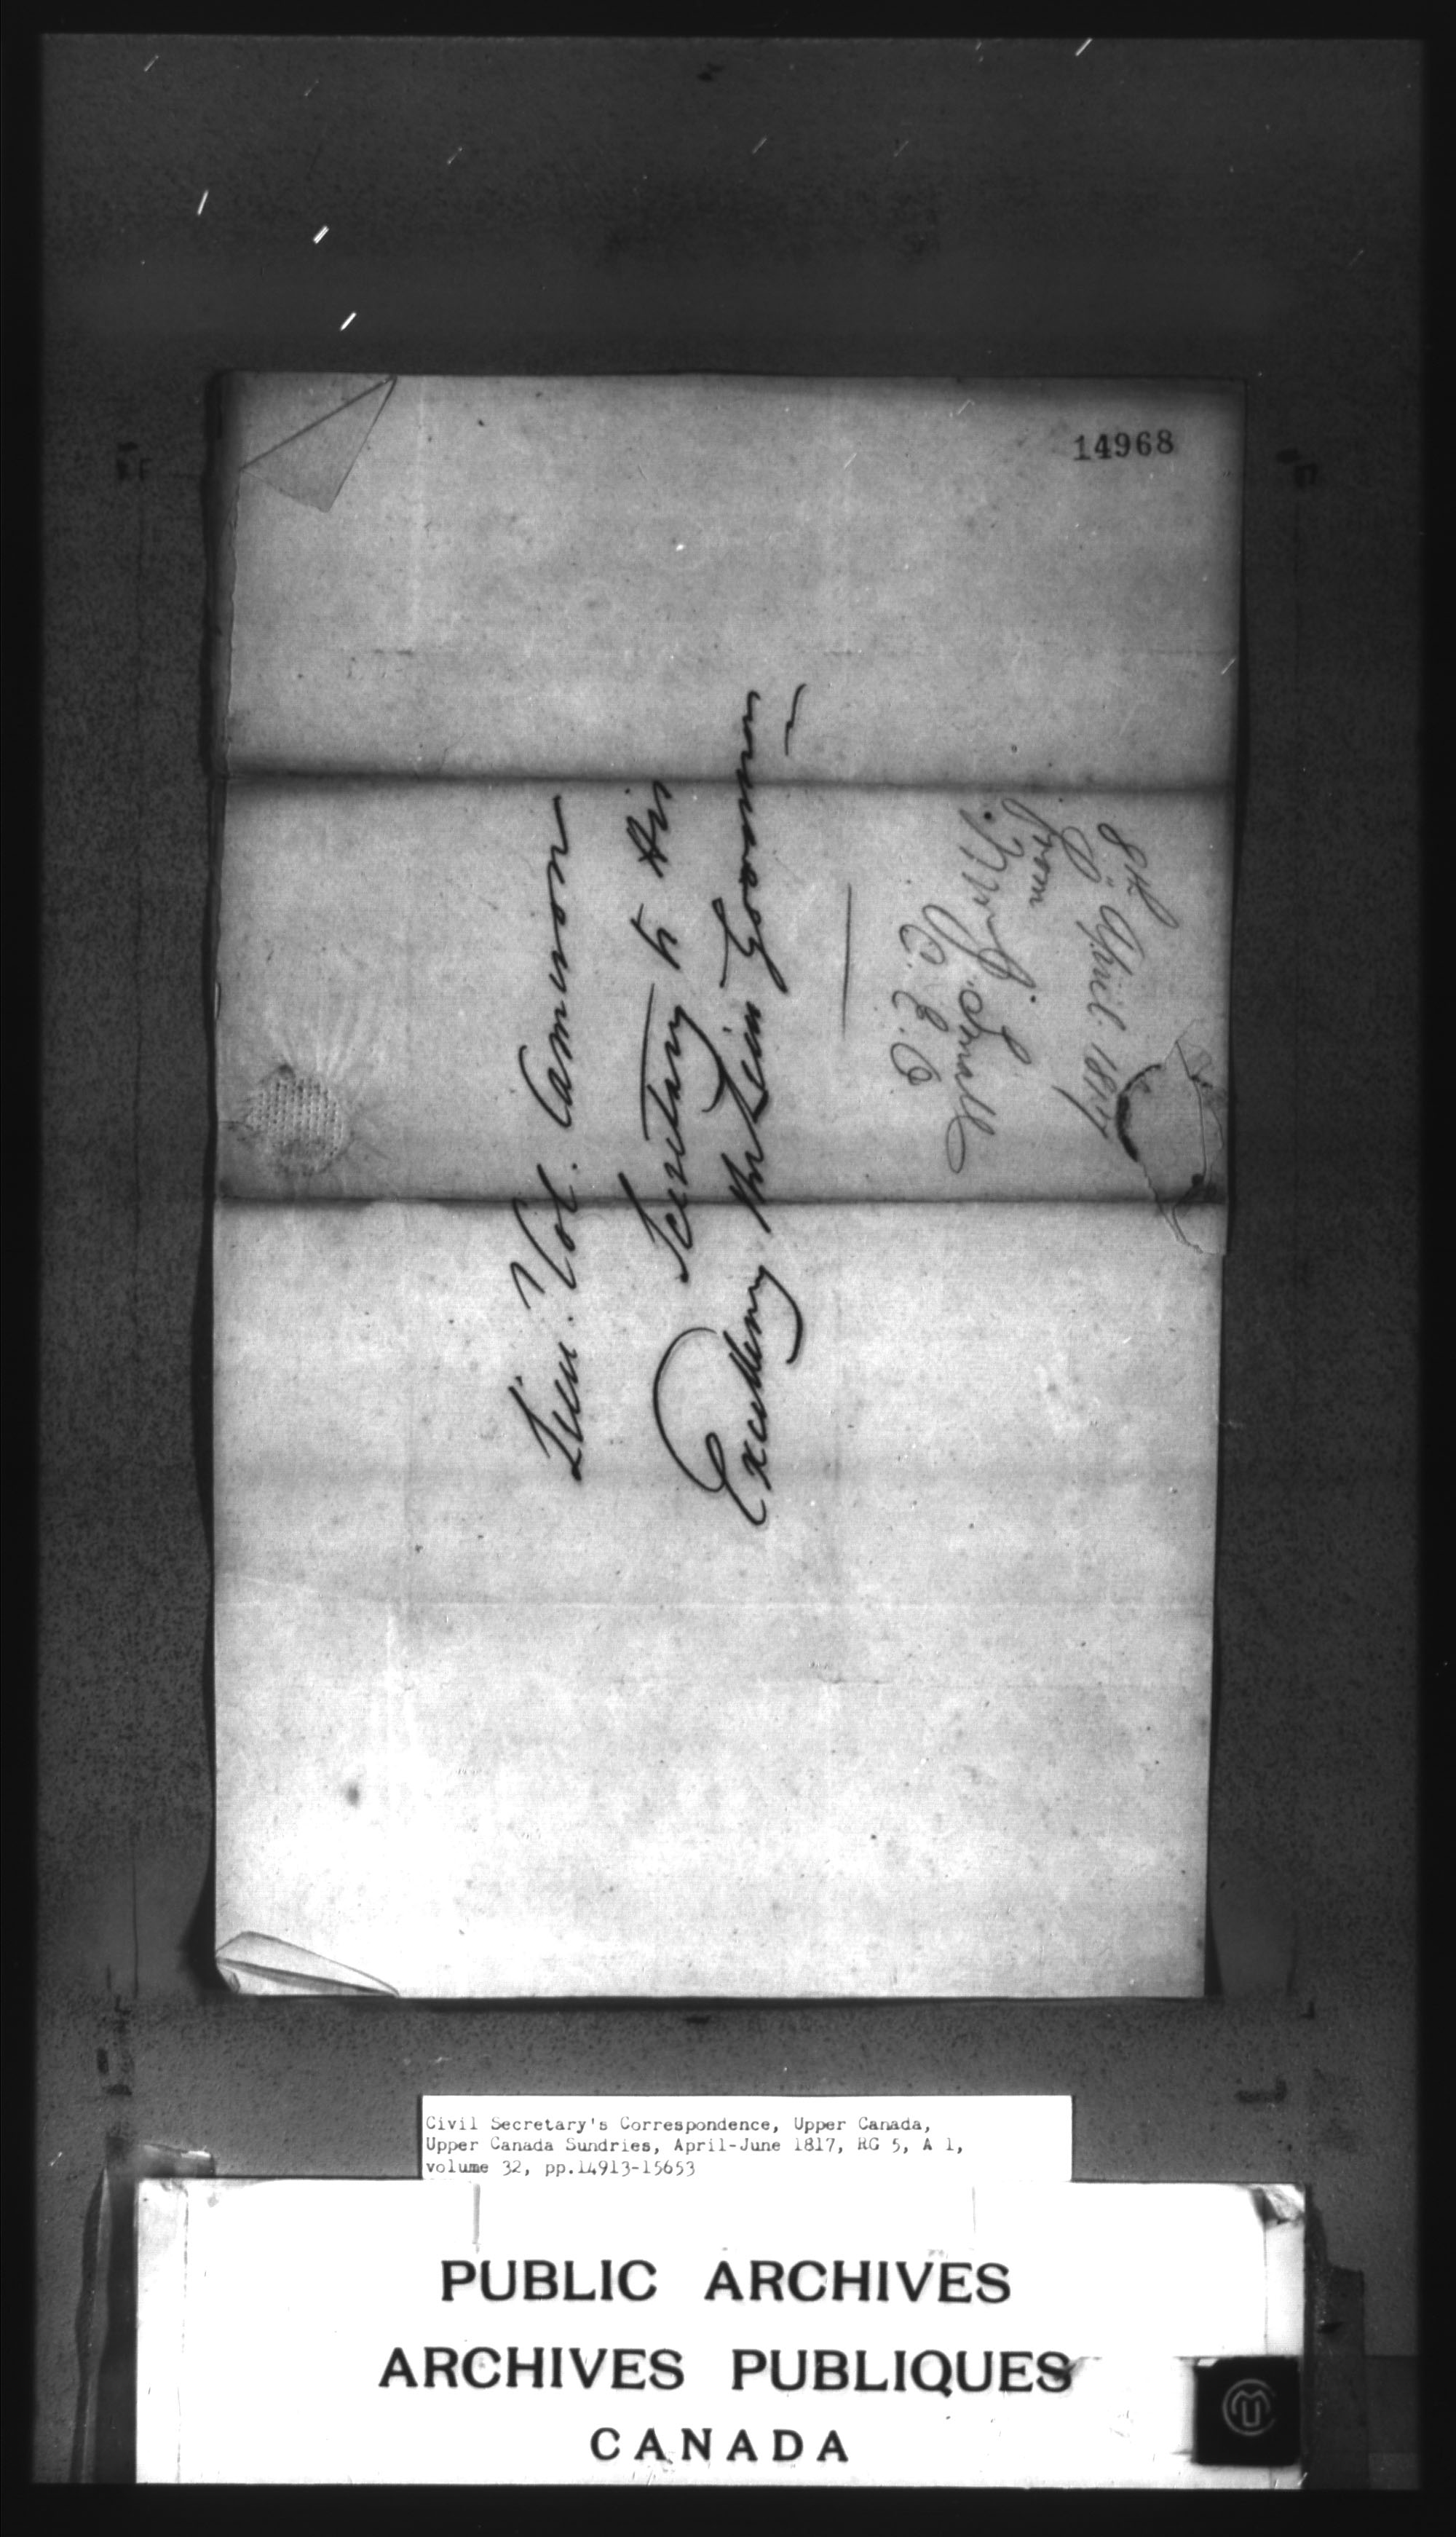 14968
Lieu. Col. Cameron
Secretary to His
Excellency the Lieu Governor
8th April 1817
from
Mr J. Small
C. E. C
Civil Secretary's Correspondence, Upper Canada,
Upper Canada Sundries, April-June 1817, RG 5, A 1,
volume 32, pp.14913-15653
PUBLIC ARCHIVES
ARCHIVES PUBLIQUES
CANADA